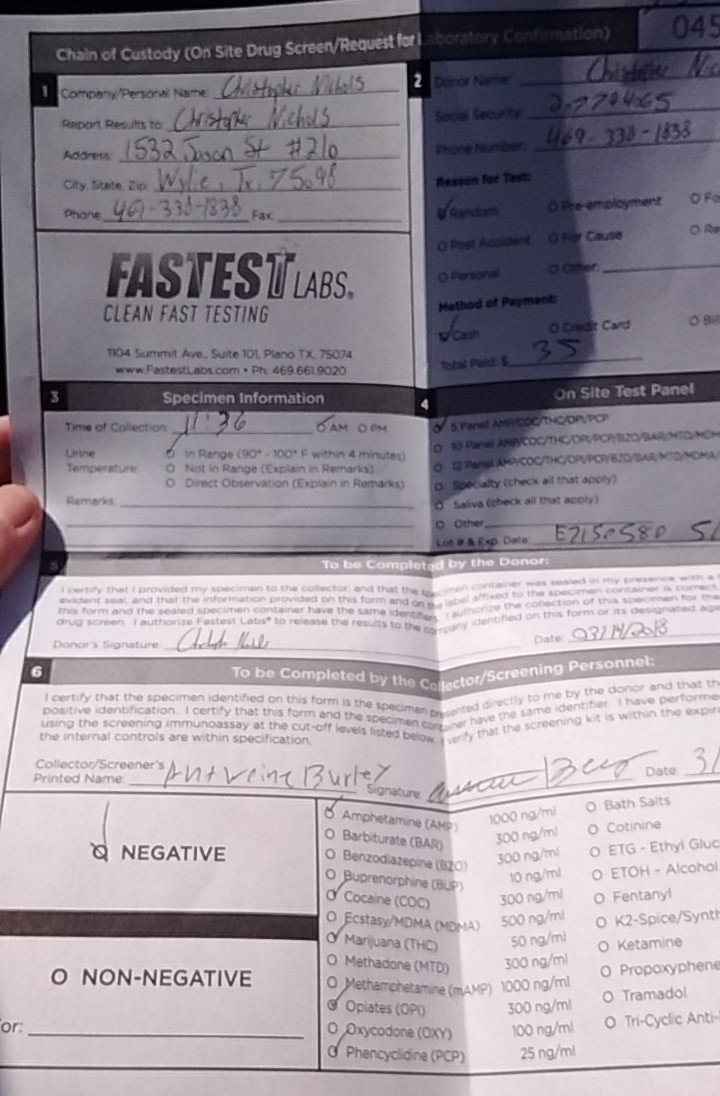 045
Chain of Custody (On Site Drug Screen/Request for Laboratory Confirmation)
1
Company/Personal Name: Christopher Nichols
Report Results to: Christopher Nichols
Address: 1532 Jason St #210
City, State, Zip: Wylie, Tx, 75098
Phone: 469-338-1838 Fax:
FASTEST LABS®
CLEAN FAST TESTING
1104 Summit Ave., Suite 101, Plano TX, 75074
www.FastestLabs.com • Ph: 469.661.9020
2
Donor Name: Christopher Nic
Social Security:
Phone Number: 469-338-1838
Reason for Test:
Random Pre-employment Fo
Post Accident For Cause Re
Personal Other:
Method of Payment:
Cash Credit Card Bil
Total Paid: $ 35
3 Specimen Information
Time of Collection: 11:36 AM PM
Urine Temperature:
In Range (90° - 100° F within 4 minutes)
Not In Range (Explain in Remarks)
Direct Observation (Explain in Remarks)
Remarks:
4 On Site Test Panel
5 Panel AMP/COC/THC/OPI/PCP
10 Panel AMP/COC/THC/OPI/PCP/BZO/BAR/MTD/MDM
12 Panel AMP/COC/THC/OPI/PCP/BZO/BAR/MTD/MDMA/
Specialty (check all that apply)
Saliva (check all that apply)
Other
Lot # & Exp. Date:
5 To be Completed by the Donor:
I certify that I provided my specimen to the collector; and that the specimen container was sealed in my presence with a
evident seal, and that the information provided on this form and on the label affixed to the specimen container is correct.
this form and the sealed specimen container have the same identifiers. I authorize the collection of this specimen for the
drug screen. I authorize Fastest Labs® to release the results to the company identified on this form or its designated age
Donor's Signature: Date: 03/14/2018
6 To be Completed by the Collector/Screening Personnel:
I certify that the specimen identified on this form is the specimen presented directly to me by the donor and that th
positive identification. I certify that this form and the specimen container have the same identifier. I have performe
using the screening immunoassay at the cut-off levels listed below. I verify that the screening kit is within the expira
the internal controls are within specification.
Collector/Screener's
Printed Name: Antwoine Burley Signature: Date: 3/
NEGATIVE
NON-NEGATIVE
or:
Amphetamine (AMP) 1000 ng/ml
Barbiturate (BAR) 300 ng/ml
Benzodiazepine (BZO) 300 ng/ml
Buprenorphine (BUP) 10 ng/ml
Cocaine (COC) 300 ng/ml
Ecstasy/MDMA (MDMA) 500 ng/ml
Marijuana (THC) 50 ng/ml
Methadone (MTD) 300 ng/ml
Methamphetamine (mAMP) 1000 ng/ml
Opiates (OPI) 300 ng/ml
Oxycodone (OXY) 100 ng/ml
Phencyclidine (PCP) 25 ng/ml
Bath Salts
Cotinine
ETG - Ethyl Gluc
ETOH - Alcohol
Fentanyl
K2-Spice/Synth
Ketamine
Propoxyphene
Tramadol
Tri-Cyclic Anti-